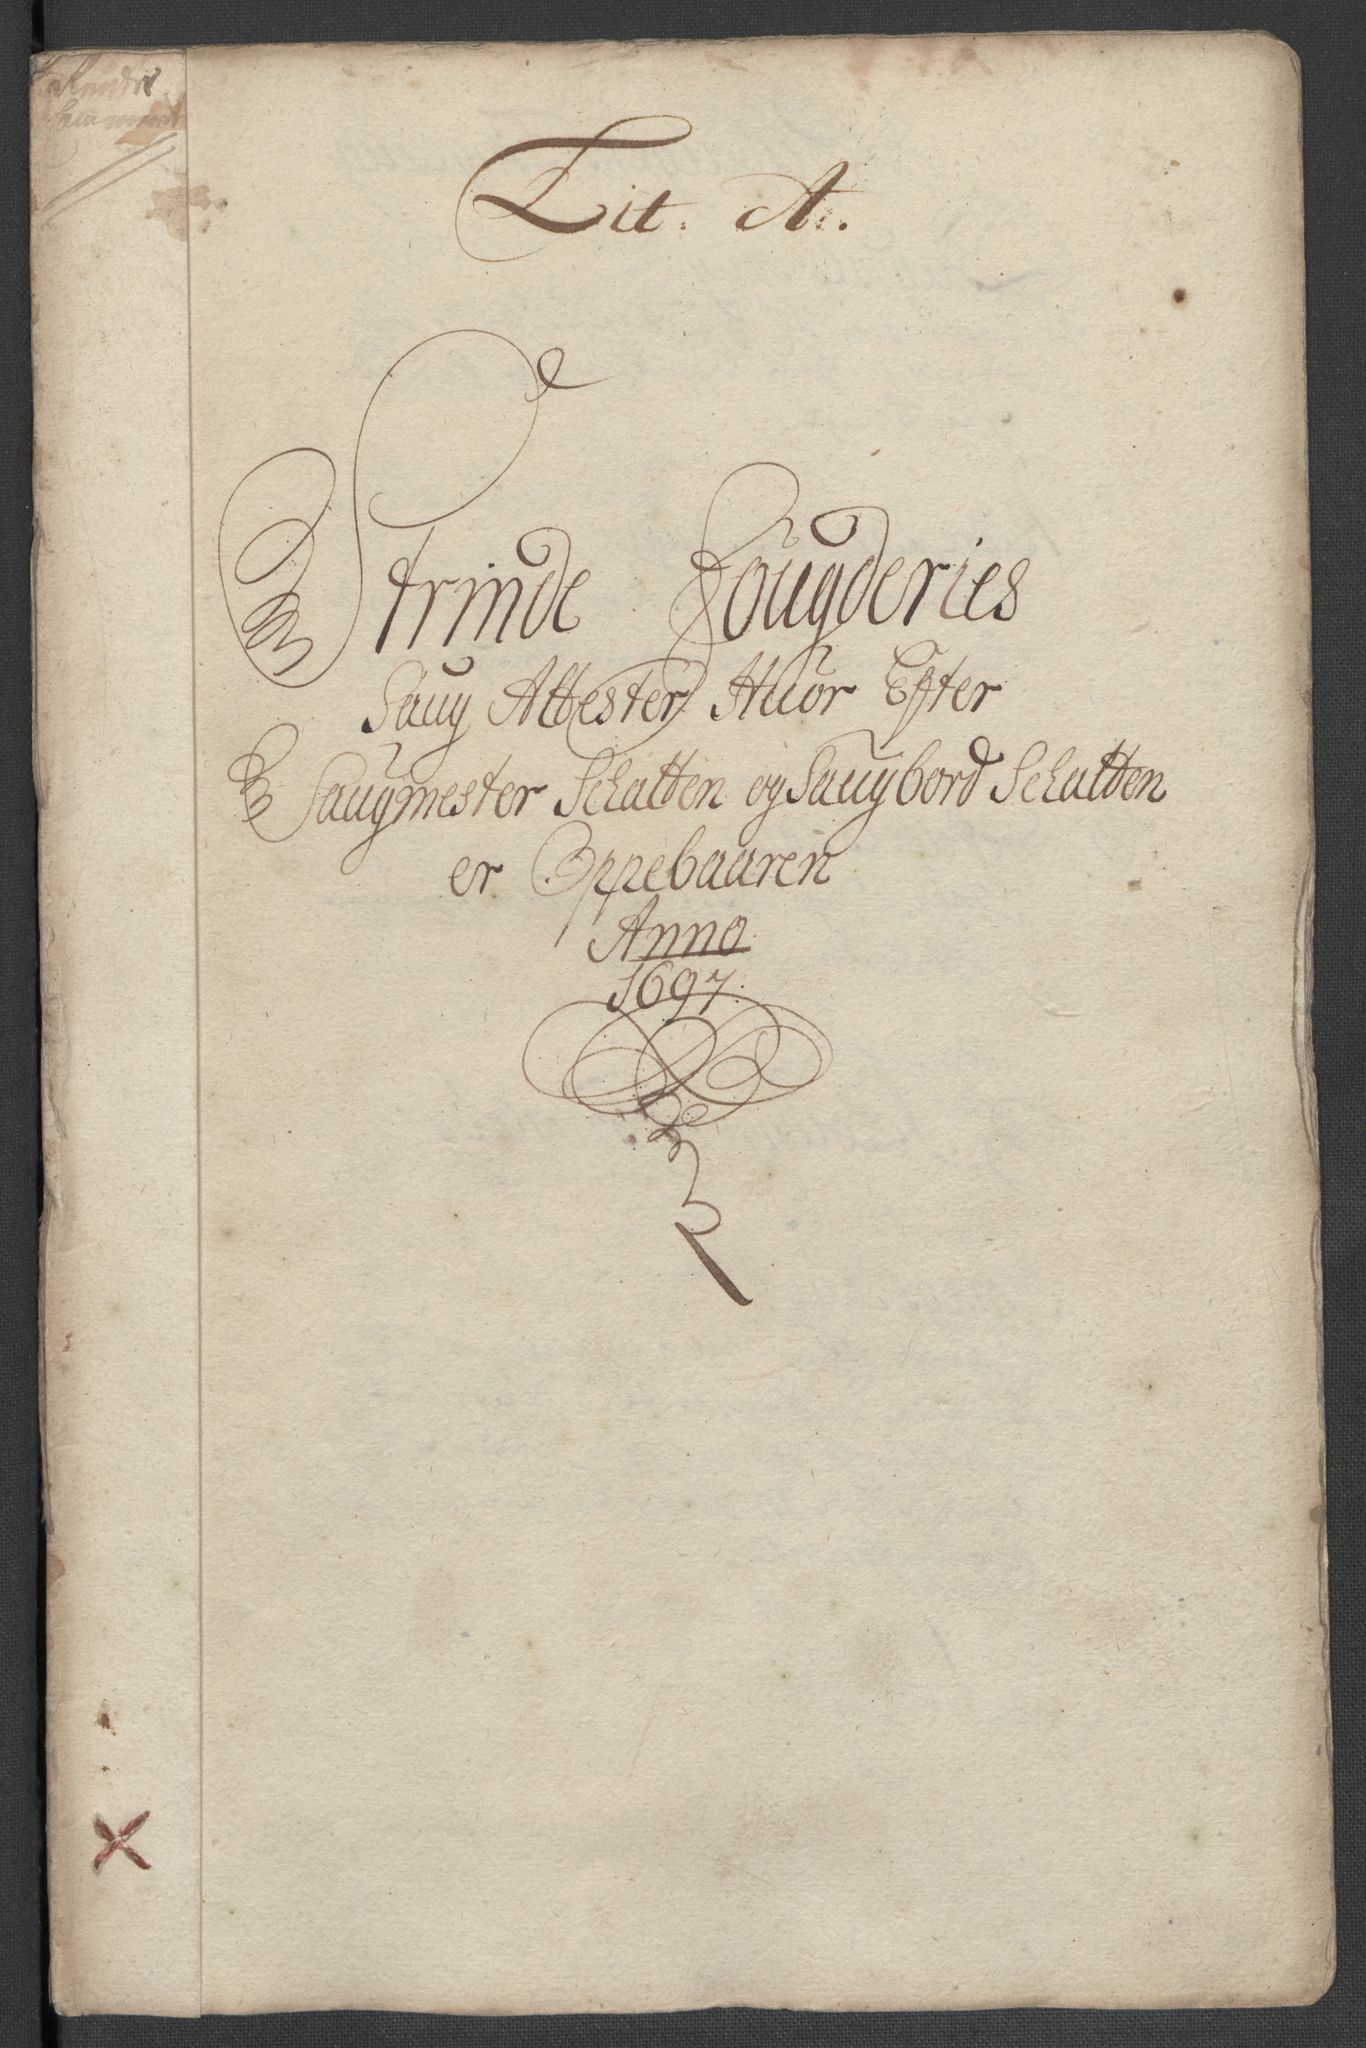 Rente
Cammeret
Lit. A.
Strinde Fougderies
Saug Attester Huor Efter
Saugmester Schatten og Saugbord Schatten
er Oppebaaren
Anno
1697.